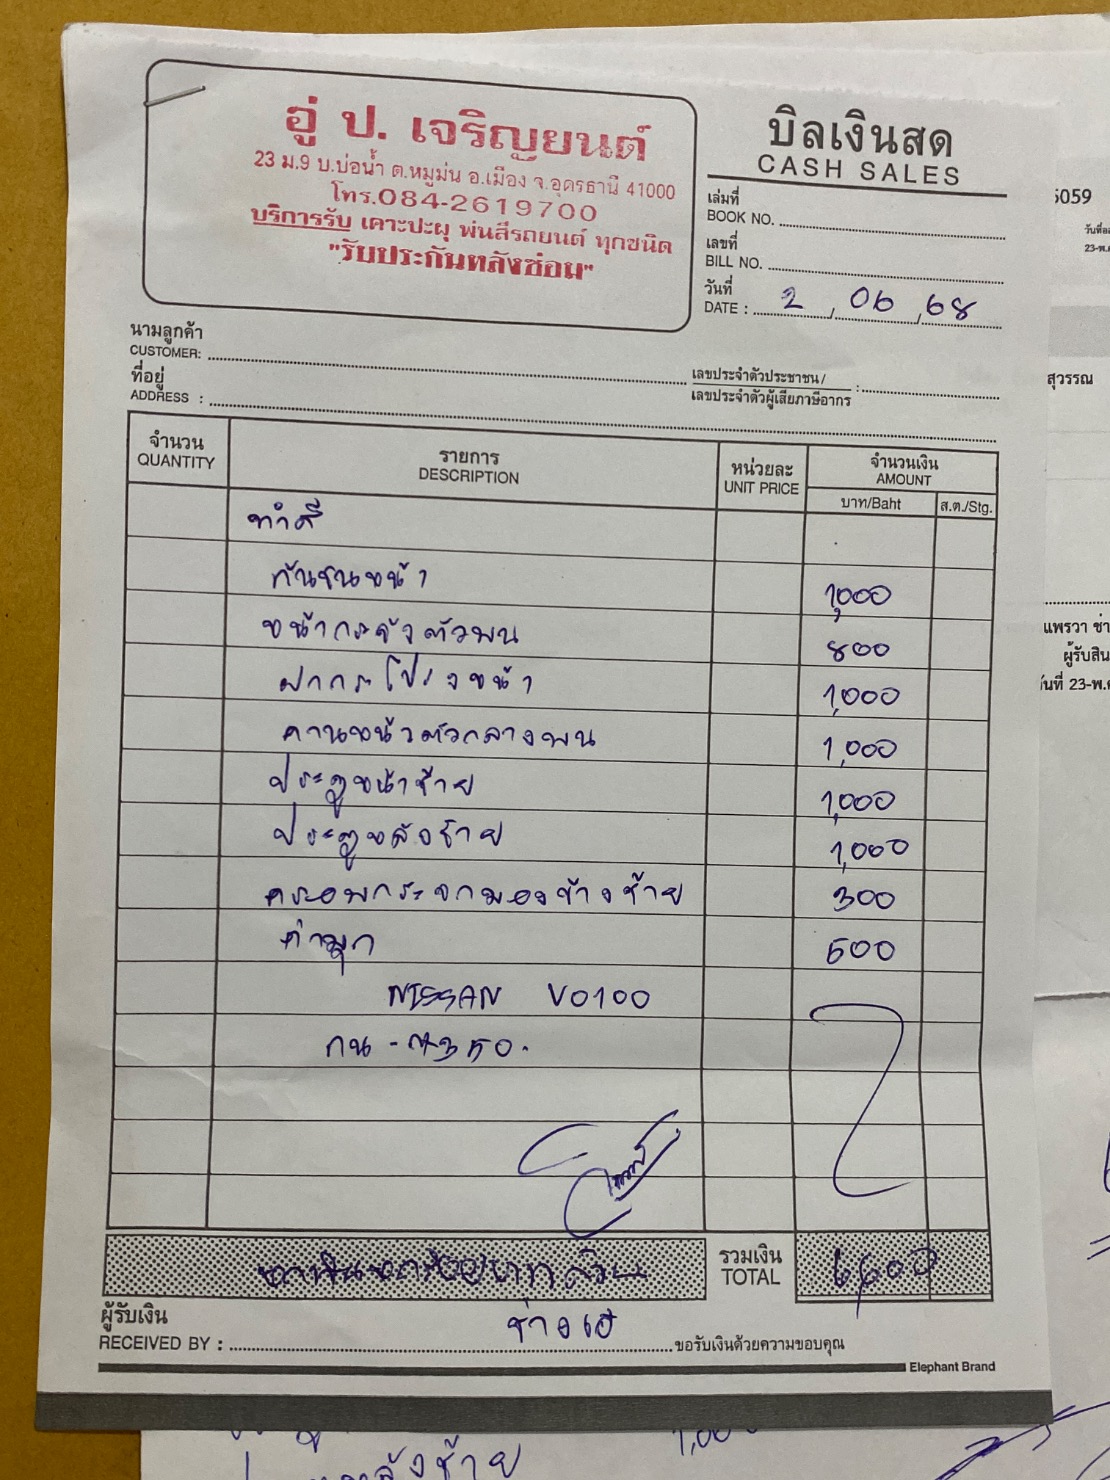 อู่ ป. เจริญยนต์
23 ม.9 บ.บ่อน้ำ ต.หมูม่น อ.เมือง จ.อุดรธานี 41000
โทร.084-2619700
บริการรับ เคาะปะผุ พ่นสีรถยนต์ ทุกชนิด
"รับประกันหลังซ่อม"
บิลเงินสด
CASH SALES
เล่มที่
BOOK NO.
เลขที่
BILL NO.
วันที่
DATE : 2 / 06 / 68
นามลูกค้า
CUSTOMER:
ที่อยู่
ADDRESS :
เลขประจำตัวประชาชน /
เลขประจำตัวผู้เสียภาษีอากร :
จำนวน
QUANTITY
รายการ
DESCRIPTION
หน่วยละ
UNIT PRICE
จำนวนเงิน
AMOUNT
บาท/Baht ส.ต./Stg.
ทำสี
กันชนหน้า 1,000
หน้ากระจังตัวบน 800
ฝากระโปรงหน้า 1,000
คานหน้าตัวกลางบน 1,000
ประตูหน้าซ้าย 1,000
ประตูหลังซ้าย 1,000
ครอบกระจกมองข้างซ้าย 300
ค่ามุก 500
NISSAN V0100
กน - 4350.
หกพันหกร้อยบาทถ้วน
รวมเงิน
TOTAL
6,600
ผู้รับเงิน
RECEIVED BY : ขอรับเงินด้วยความขอบคุณ
Elephant Brand
5059
23-พ.ค
สุวรรณ
แพรวา ช่า
ผู้รับสิน
23-พ.ค
หลังซ้าย